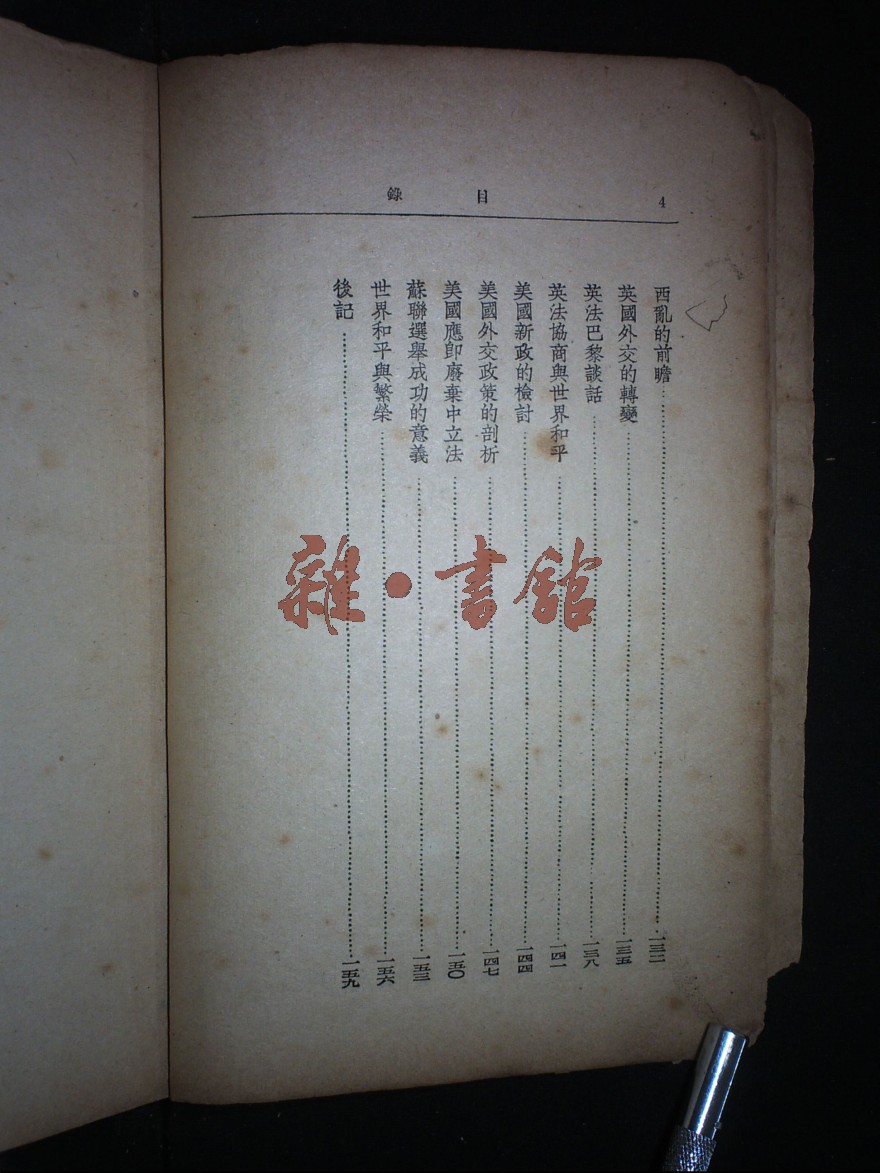 目錄
4
西亂的前瞻……一三二
英國外交的轉變……一三五
英法巴黎談話……一三八
英法協商與世界和平……一四一
美國新政的檢討……一四四
美國外交政策的剖析……一四七
美國應即廢棄中立法……一五〇
蘇聯選舉成功的意義……一五三
世界和平與繁榮……一五六
後記……一五九
雜·書館